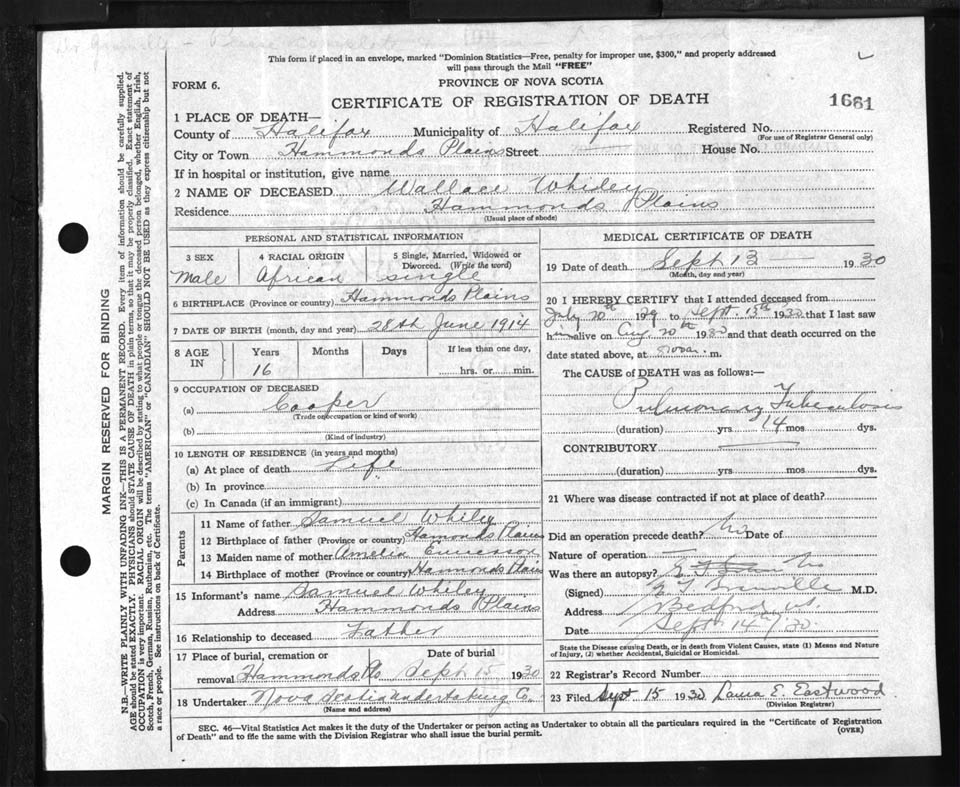 This form if placed in an envelope, marked "Dominion Statistics—Free, penalty for improper use, $300," and properly addressed
will pass through the Mail "FREE"
FORM 6.
PROVINCE OF NOVA SCOTIA
CERTIFICATE OF REGISTRATION OF DEATH
1661
1 PLACE OF DEATH—
County of Halifax Municipality of Halifax Registered No.
(For use of Registrar General only)
City or Town Hammonds Plains Street House No.
If in hospital or institution, give name
2 NAME OF DECEASED Wallace Whiley
Residence Hammonds Plains
(Usual place of abode)
PERSONAL AND STATISTICAL INFORMATION
3 SEX 4 RACIAL ORIGIN 5 Single, Married, Widowed or
Divorced. (Write the word)
Male African single
6 BIRTHPLACE (Province or country) Hammonds Plains
7 DATE OF BIRTH (month, day and year) 28th June 1914
8 AGE IN Years Months Days If less than one day,
16 hrs. or min.
9 OCCUPATION OF DECEASED
(a) Cooper
(Trade or occupation or kind of work)
(b)
(Kind of industry)
10 LENGTH OF RESIDENCE (in years and months)
(a) At place of death Life
(b) In province
(c) In Canada (if an immigrant)
Parents
11 Name of father Samuel Whiley
12 Birthplace of father (Province or country) Hamonds Plains
13 Maiden name of mother Amelia
14 Birthplace of mother (Province or country) Hamonds Plains
15 Informant's name Samuel Whiley
Address Hammonds Plains
16 Relationship to deceased Father
17 Place of burial, cremation or Date of burial
removal Hammonds Pls Sept 15 1930
18 Undertaker Nova Scotia Undertaking Co.
(Name and address)
MEDICAL CERTIFICATE OF DEATH
19 Date of death Sept 13 1930
(Month, day and year)
20 I HEREBY CERTIFY that I attended deceased from
July 20th 1929 to Sept. 13th 1930 that I last saw
him alive on Aug. 20th 1930 and that death occurred on the
date stated above, at m.
The CAUSE of DEATH was as follows:
Pulmonary Tuberculosis
(duration) yrs 14 mos dys.
CONTRIBUTORY
(duration) yrs mos dys.
21 Where was disease contracted if not at place of death?
Did an operation precede death? No Date of
Nature of operation
Was there an autopsy? No
(Signed) M.D.
Address Bedford N.S.
Date Sept 14th/30.
State the Disease causing Death, or in death from Violent Causes, state (1) Means and
Nature of Injury, (2) whether Accidental, Suicidal or Homicidal.
22 Registrar's Record Number
23 Filed Sept 15 1930 Laura E. Eastwood
(Division Registrar)
SEC. 46—Vital Statistics Act makes it the duty of the Undertaker or person acting as Undertaker to obtain all the particulars required in the "Certificate of Registration
of Death" and to file the same with the Division Registrar who shall issue the burial permit.
(OVER)
MARGIN RESERVED FOR BINDING
N.B.—WRITE PLAINLY WITH UNFADING INK—THIS IS A PERMANENT RECORD. Every item of information should be carefully supplied.
AGE should be stated EXACTLY. PHYSICIANS should STATE CAUSE OF DEATH in plain terms, so that it may be properly classified. Exact statement of
OCCUPATION is very important. RACIAL ORIGIN will be described by stating to what people or tongue the deceased person belonged, whether English, Irish,
Scotch, French, German, Russian, Ruthenian, etc. The terms "AMERICAN" or "CANADIAN" SHOULD NOT BE USED as they express citizenship but not
a race or people. See instructions on back of Certificate.